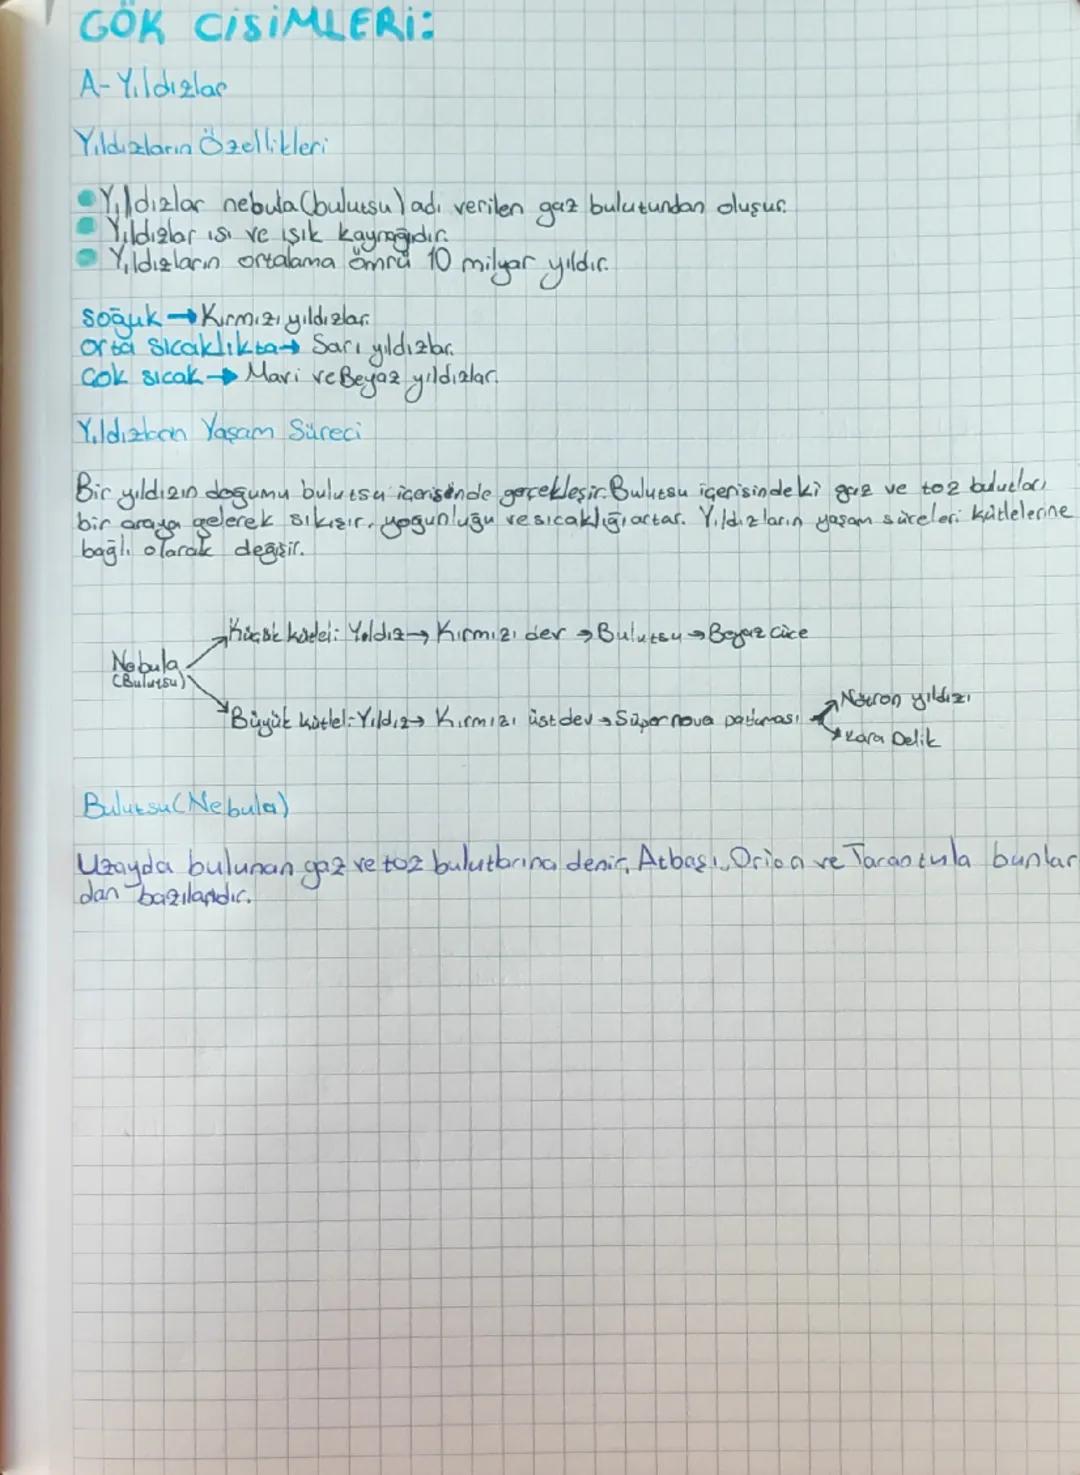 GÖK CİSİMLERİ:
A- Yıldızlar
Yıldızların Özellikleri
Yıldızlar nebula (bulutsu) adı verilen gaz bulutundan oluşur.
Yıldızlar ısı ve ışık kaynağıdır.
Yıldızların ortalama ömrü 10 milyar yıldır.
Soğuk → Kırmızı yıldızlar.
Orta Sıcaklıkta → Sarı yıldızlar.
Çok sıcak → Mavi ve Beyaz yıldızlar.
Yıldızların Yaşam Süreci
Bir yıldızın doğumu bulutsu içerisinde gerçekleşir. Bulutsu içerisindeki gaz ve toz bulutları
bir araya gelerek sıkışır, yoğunluğu ve sıcaklığı artar. Yıldızların yaşam süreleri kütlelerine
bağlı olarak değişir.
Küçük kütleli: Yıldız → Kırmızı dev → Bulutsu → Beyaz cüce
Nebula
(Bulutsu)
Büyük kütleli: Yıldız → Kırmızı üstdev → Süpernova patlaması
Nötron yıldızı
Kara Delik
Bulutsu (Nebula)
Uzayda bulunan gaz ve toz bulutlarına denir, Atbaşı, Orion ve Tarantula bunlar
dan bazılarıdır.